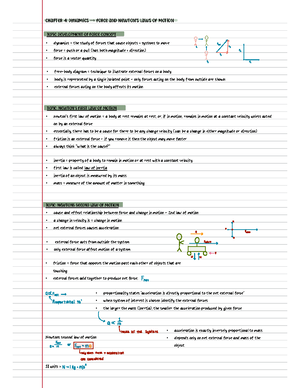 CHAPTER 4: DYNAMICS → FORCE AND NEWTON'S LAWS OF MOTION
TOPIC: DEVELOPMENT OF FORCE CONCEPT
• dynamics = the study of forces that cause objects + systems to move
• force = push or a pull (has both magnitude + direction)
• force is a vector quantity
• free-body diagram = technique to illustrate external forces on a body
• body is represented by a single isolated point - only forces acting on the body from outside are shown
• external forces acting on the body affects its motion
TOPIC: NEWTON'S FIRST LAW OF MOTION
• newton's first law of motion = a body at rest remains at rest, or, if in motion, remains in motion at a constant velocity unless acted
on by an external force
• essentially there has to be a cause for there to be any change velocity (can be a change in either magnitude or direction)
• friction is an external force - if you remove it then the object may move faster
• always think "what is the cause?"
• inertia = property of a body to remain in motion or at rest with a constant velocity
• first law is called law of inertia
• inertia of an object is measured by its mass
• mass = measure of the amount of matter in something
TOPIC: NEWTONS SECOND LAW OF MOTION
• cause and effect relationship between force and change in motion = 2nd law of motion
• a change in velocity is = change in motion
• net external forces causes acceleration
• external force acts from outside the system
• only external force affect motion of a system
• friction = force that opposes the motion past each other of objects that are
touching
• external forces add together to produce net force
• proportionality states "acceleration is directly proportional to the net external force"
• when system of interest is chosen identify the external forces
• the larger the mass (inertia), the smaller the acceleration produced by given force
mass of the system
• acceleration is exactly inversely proportional to mass
• depends only on net external force and mass of the
object
Newtons second law of motion